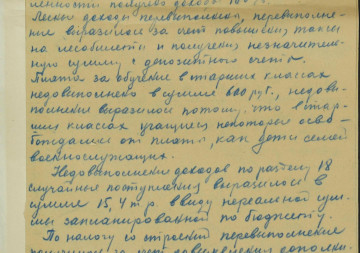 ленности получено дохода
Лесные доходы перевыполнены, перевыполне-
ние выразилось за счет повышения таксы
на лесобилеты и получения незначитель-
ную сумму с депозитного счета.
Плата за обучение в старших классах
недовыполнено в сумме 660 руб., недовы-
полнение выразилось потому, что в стар-
ших классах учащиеся некоторые осво-
бождались от платы, как дети семей
военнослужащих.
Недовыполнение доходов по разделу 18
случайные поступления выразилось в
сумме 15,4 т.р. ввиду нереальной сум-
мы запланированной по бюджету.
По налогу со строений перевыполнение
за счет дополни-